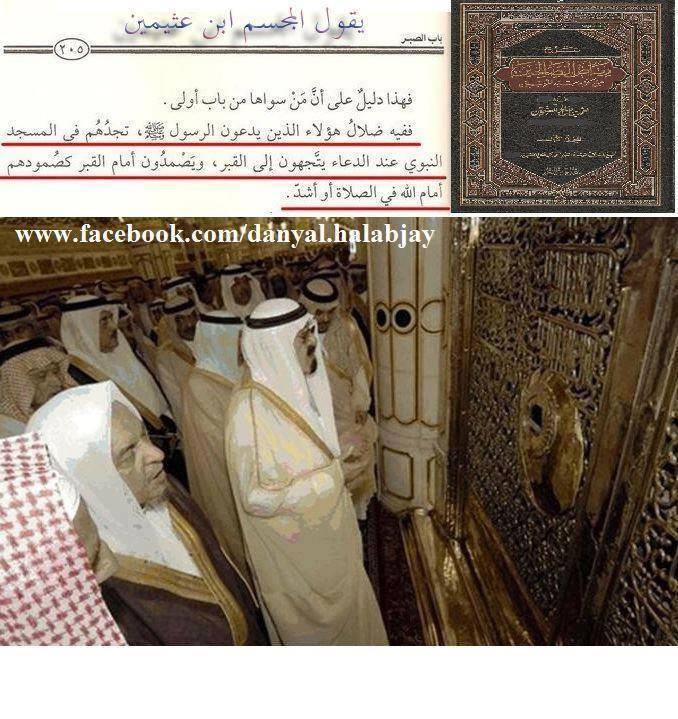 يقول المجسم ابن عثيمين
باب الصبر
٢٠٥
فهذا دليلٌ على أنَّ مَنْ سواها من باب أولى .
ففيه ضلالُ هؤلاء الذين يدعون الرسول ﷺ، تجدُهُم في المسجد
النبوي عند الدعاء يتَّجهون إلى القبر، ويَصْمدُون أمام القبر كصُمودهم
أمام الله في الصلاة أو أشدّ .
www.facebook.com/danyal.halabjay